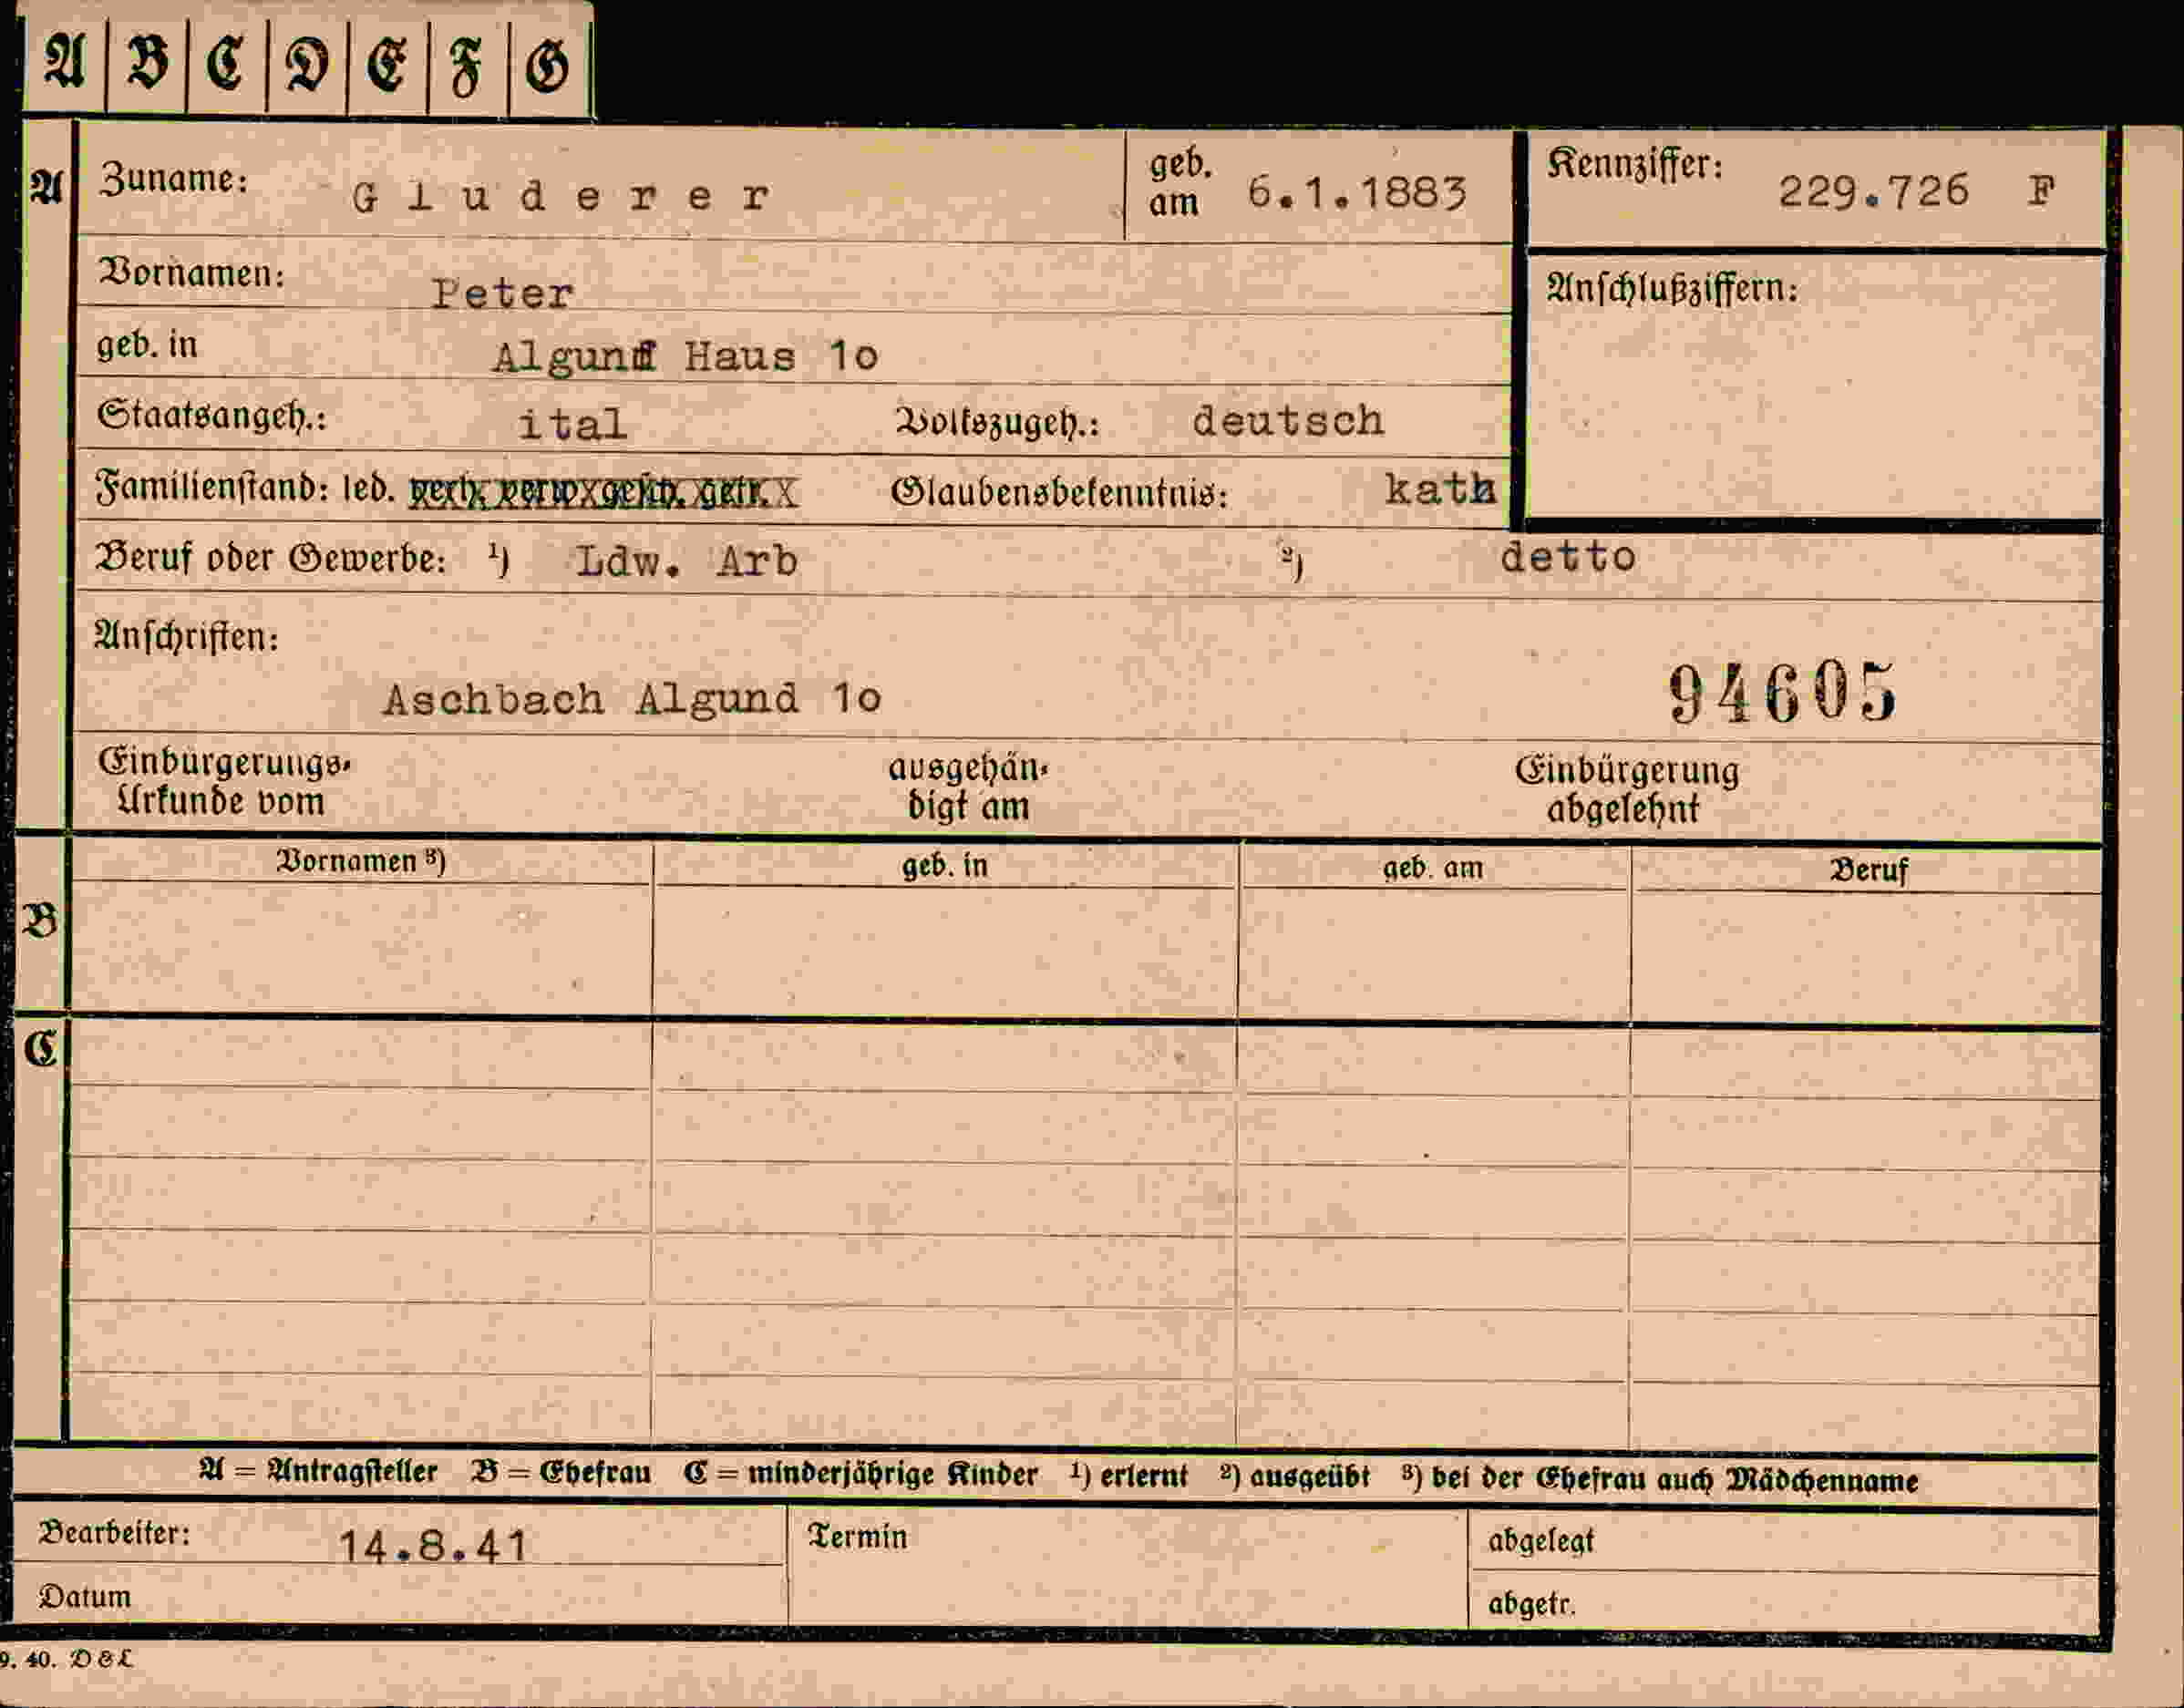 A B C D E F G
A Zuname: Gluderer geb. am 6.1.1883 Kennziffer: 229.726 F
Vornamen: Peter Anschlußziffern:
geb. in Algund Haus 1o
Staatsangeh.: ital Volkszugeh.: deutsch
Familienstand: led. verh. verw. gesch. getr. Glaubensbekenntnis: kath
Beruf oder Gewerbe: ¹) Ldw. Arb ²) detto
Anschriften:
Aschbach Algund 1o 94605
Einbürgerungs- ausgehän- Einbürgerung
Urkunde vom digt am abgelehnt
Vornamen ³) geb. in geb. am Beruf
B
C
A = Antragsteller B = Ehefrau C = minderjährige Kinder ¹) erlernt ²) ausgeübt ³) bei der Ehefrau auch Mädchenname
Bearbeiter: 14.8.41 Termin abgelegt
Datum abgetr.
9. 40. D & L